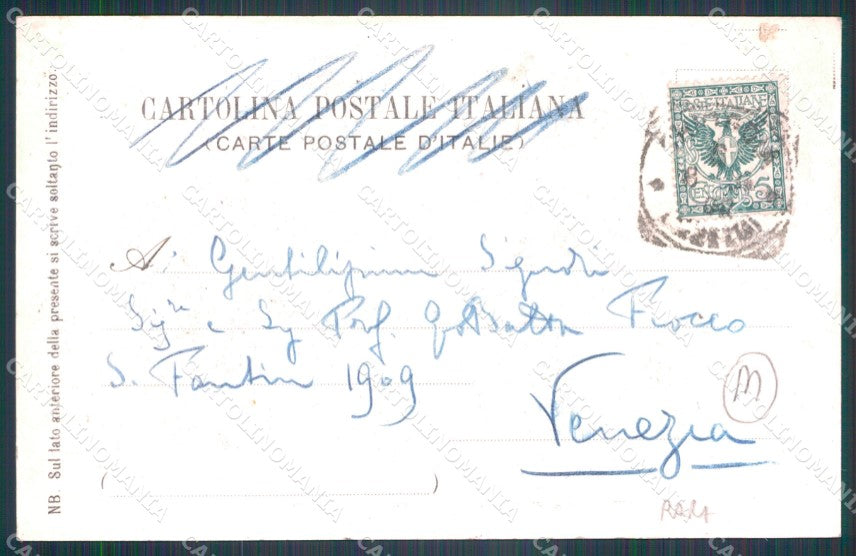 CARTOLINA POSTALE ITALIANA
(CARTE POSTALE D'ITALIE)
POSTE ITALIANE
CENT 5
A: Gentilissimi Signori
Sig.ra e Sig Prof. G. Batta Fiocco
S. Fantin 1909
Venezia
M
RARA
NB. Sul lato anteriore della presente si scrive soltanto l'indirizzo.
CARTOLINOMANIA